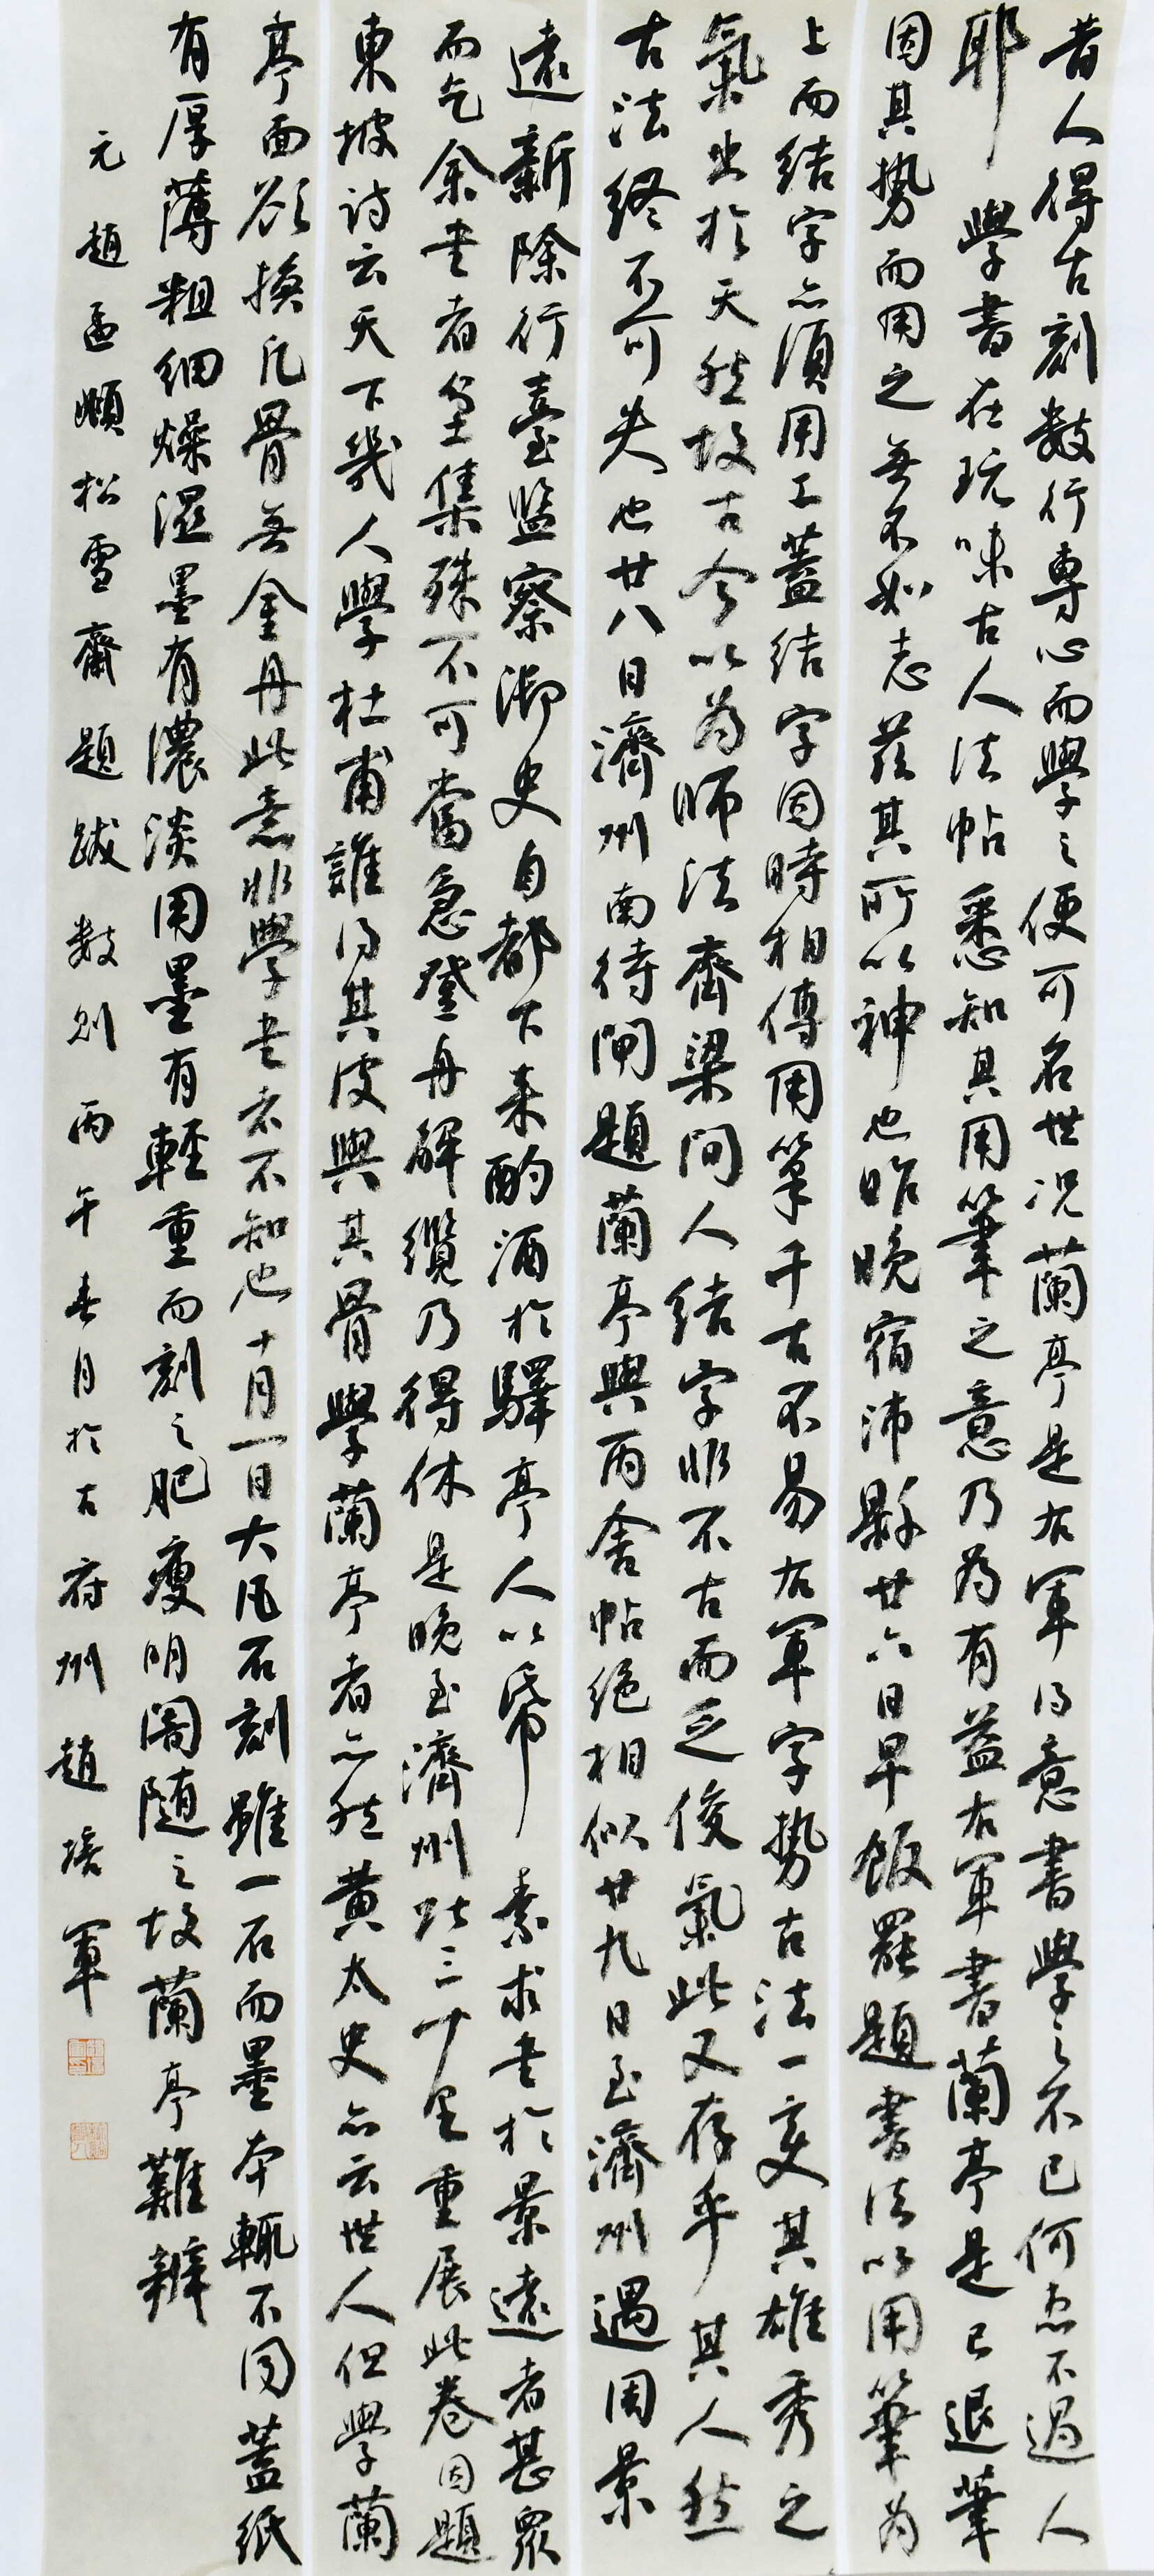 昔人得古刻數行專心而學之便可名世況蘭亭是右軍得意書學之不已何患不過人
耶 學書在玩味古人法帖悉知其用筆之意乃為有益右軍書蘭亭是已退筆
因其勢而用之無不如志茲其所以神也昨晚宿沛縣廿六日早飯罷題書法以用筆為
上而結字亦須用工蓋結字因時相傳用筆千古不易右軍字勢古法一變其雄秀之
氣出於天然故古今以為師法齊梁間人結字非不古而乏俊氣此又存乎其人然
古法終不可失也廿八日濟州南待閘題蘭亭與丙舍帖絕相似廿九日至濟州遇周景
遠新除行臺監察御史自都下來酌酒於驛亭人以帋素求書於景遠者甚眾
而乞余書者坌集殊不可當急登舟解纜乃得休是晚至濟州北三十里重展此卷因題
東坡詩云天下幾人學杜甫誰得其皮與其骨學蘭亭者亦然黃太史亦云世人但學蘭
亭面欲換凡骨無金丹此意非學書者不知也十月一日大凡石刻雖一石而墨本輒不同蓋紙
有厚薄粗細燥濕墨有濃淡用墨有輕重而刻之肥瘦明闇隨之故蘭亭難辨
元趙孟頫松雪齋題跋數則丙午春月於古府州趙培軍